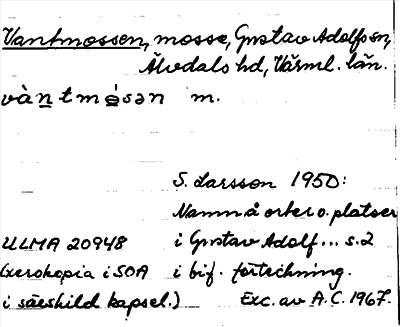 Vantmossen, mosse, Gustav Adolfs sn,
Älvdals hd, Värml. län.
và n t m ó s ə n m.
S. Larsson 1950:
Namn å orter o. platser
ULMA 20948 i Gustav Adolf... s. 2
(xerokopia i SOA i bif. förteckning.
i särskild kapsel.) Exc. av A.C. 1967.